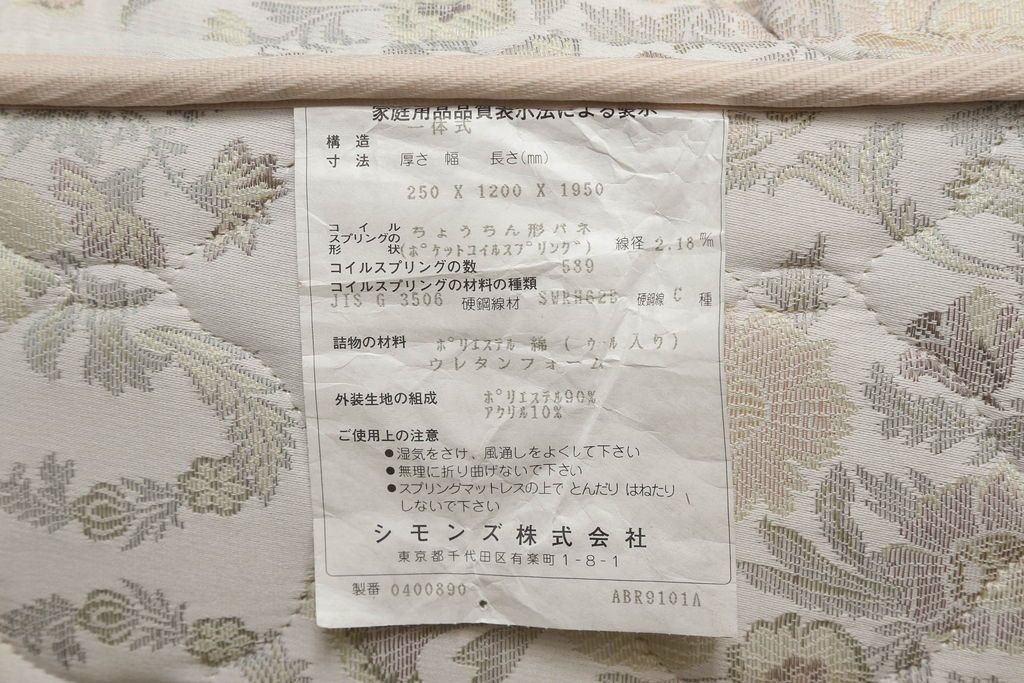 家庭用品品質表示法による表示
構造 一体式
寸法 厚さ 幅 長さ(mm)
250 X 1200 X 1950
コイルスプリングの形状 ちょうちん形バネ
(ポケットコイルスプリング) 線径 2.18 m/m
コイルスプリングの数 539
コイルスプリングの材料の種類
JIS G 3506 硬鋼線材 SWRH62B 硬鋼線 C 種
詰物の材料 ポリエステル 綿 (ウール入り)
ウレタンフォーム
外装生地の組成 ポリエステル90%
アクリル10%
ご使用上の注意
●湿気をさけ、風通しをよくして下さい
●無理に折り曲げないで下さい
●スプリングマットレスの上で とんだり はねたり
しないで下さい
シモンズ株式会社
東京都千代田区有楽町1-8-1
製番 0400890 ABR9101A